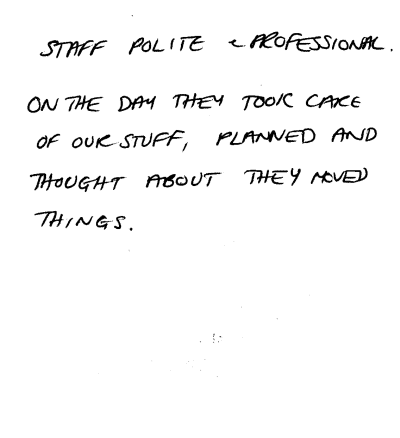 STAFF POLITE & PROFESSIONAL.
ON THE DAY THEY TOOK CARE
OF OUR STUFF, PLANNED AND
THOUGHT ABOUT THEY MOVED
THINGS.